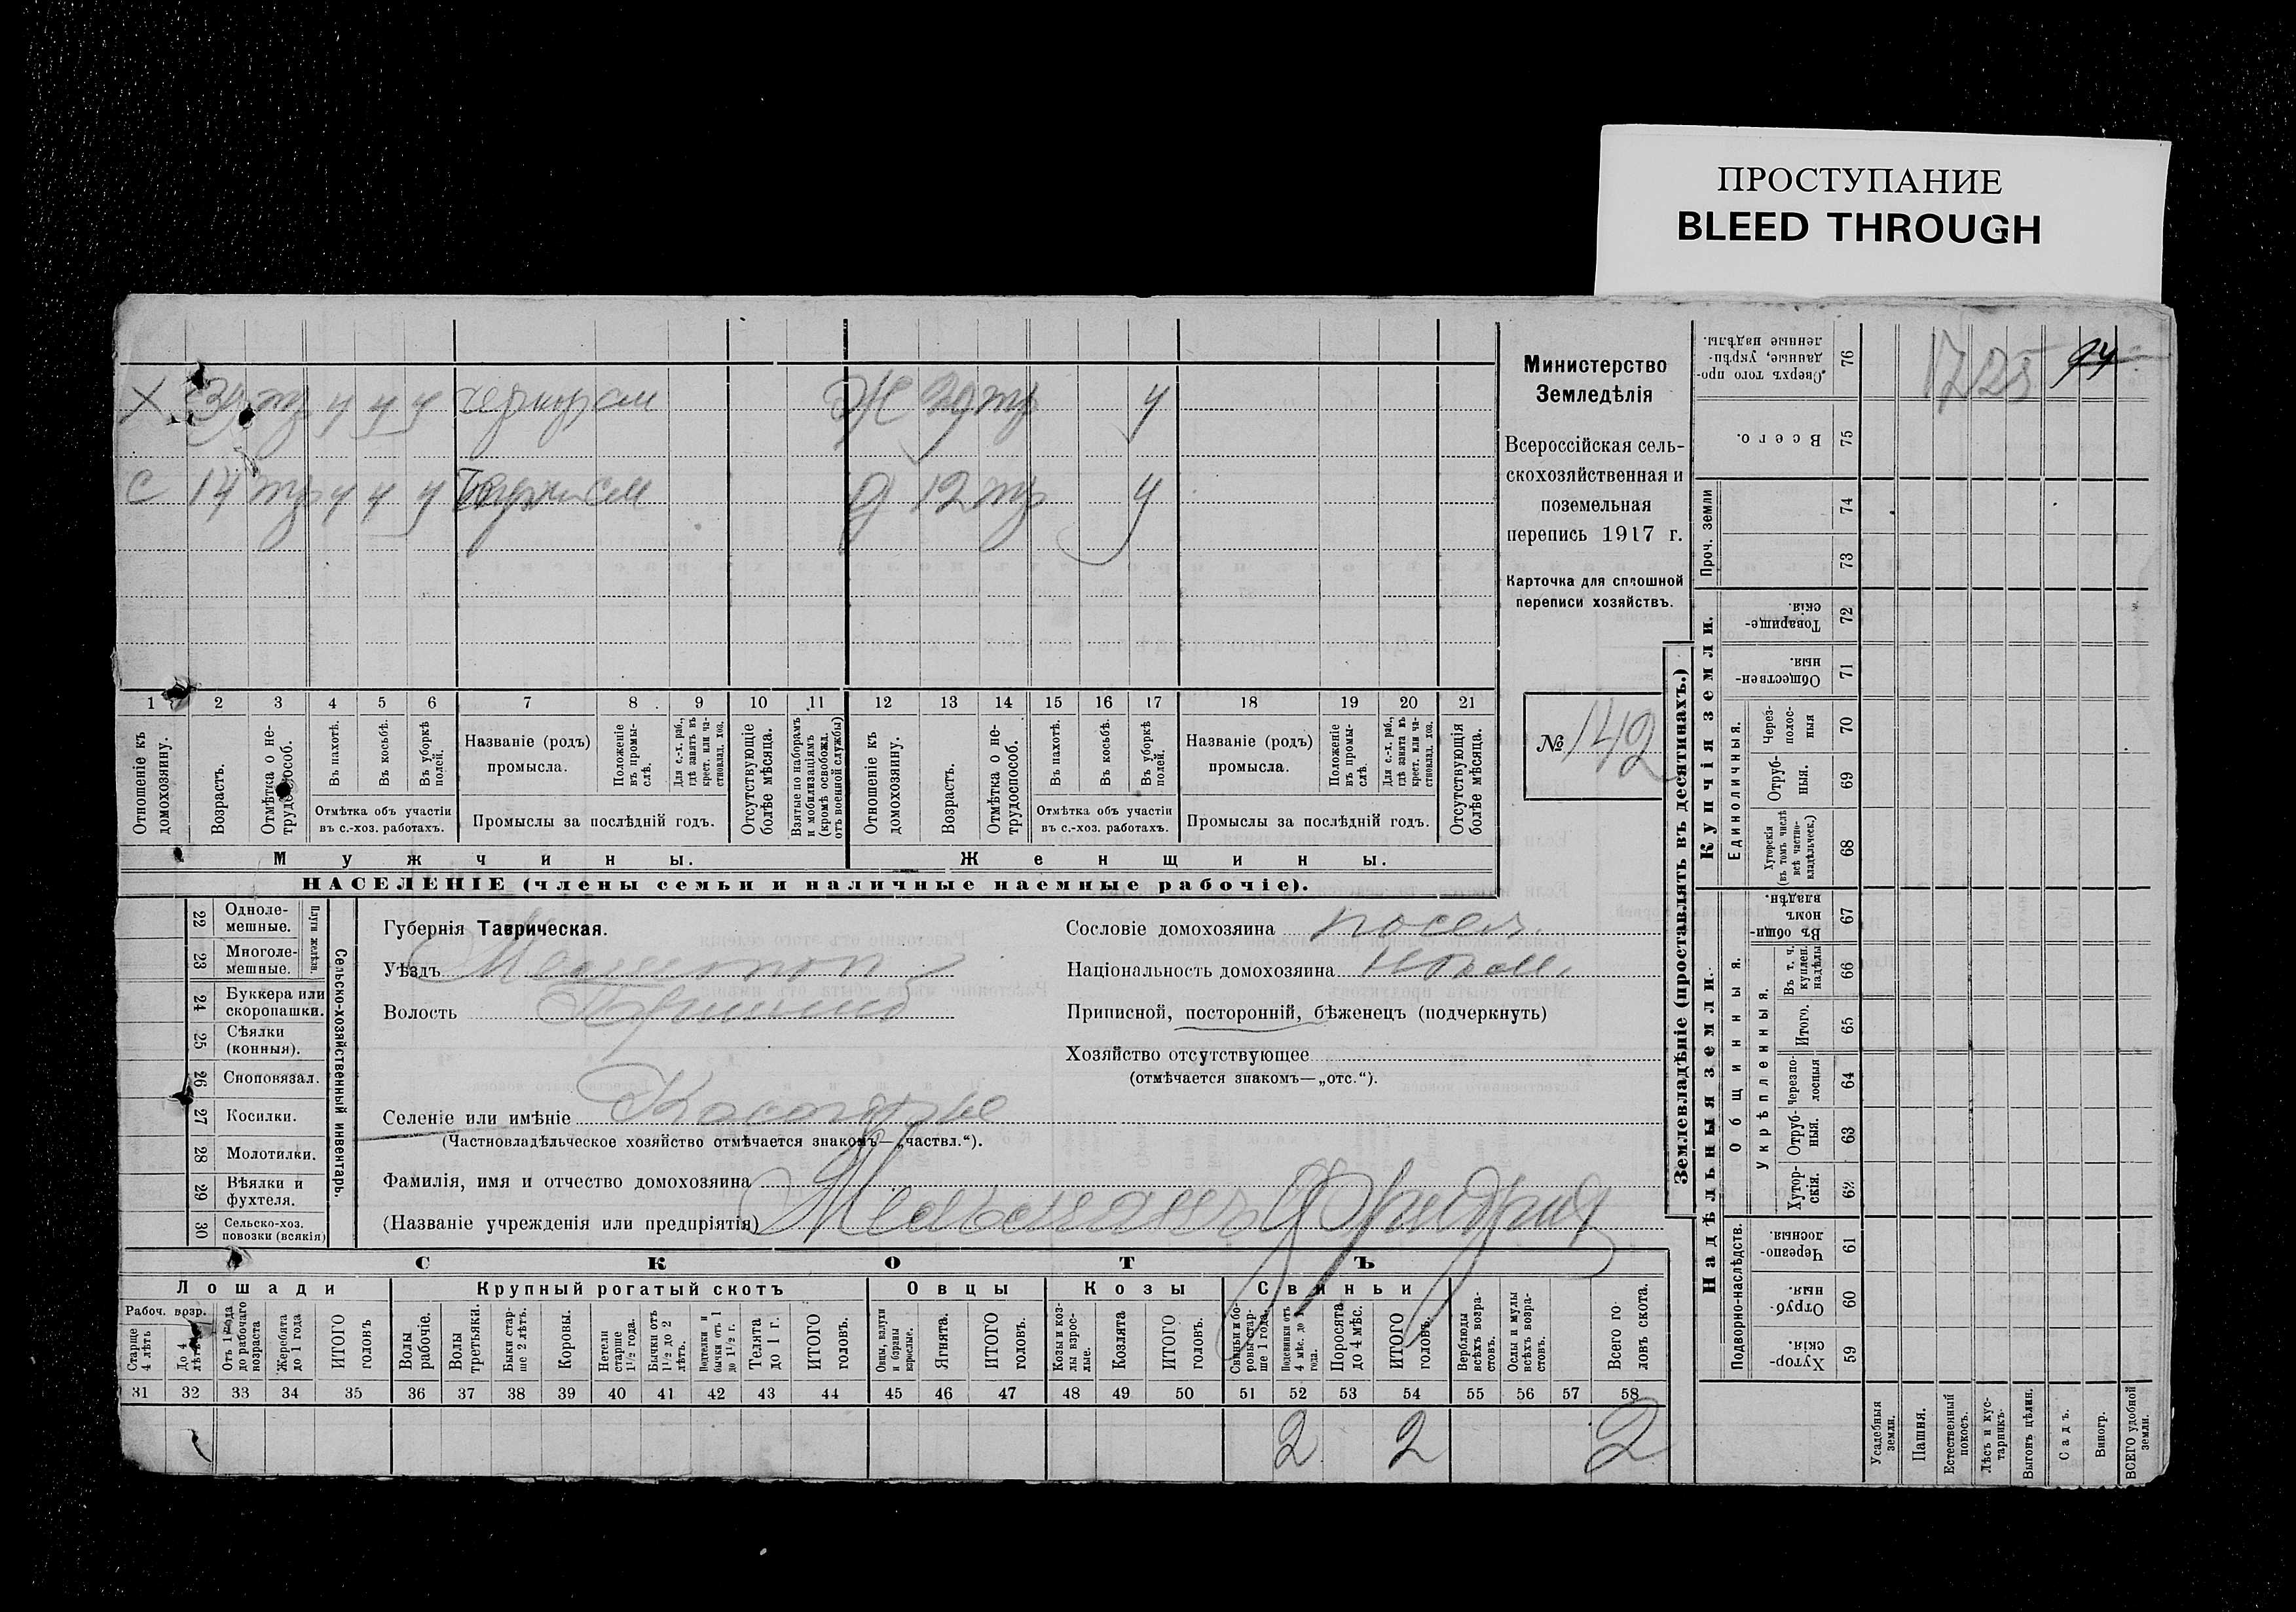 ПРОСТУПАНИЕ
BLEED THROUGH
Х 39 тр у у у
Ж 29 тр у
С 14 тр у у у
Д 12 тр у
1 2 3 4 5 6 7 8 9 10 11 12 13 14 15 16 17 18 19 20 21
Отношеніе къ домохозяину.
Возрастъ.
Отмѣтка о нетрудоспособ.
Въ пахотѣ.
Въ косьбѣ.
Въ уборкѣ полей.
Отмѣтка объ участіи въ с.-хоз. работахъ.
Названіе (родъ) промысла.
Положеніе въ промыслѣ.
Для с.-х. раб., гдѣ занятъ въ крест. или частновлад. хоз.
Промыслы за послѣдній годъ.
Отсутствующіе болѣе мѣсяца.
Взятые по наборамъ и мобилизаціямъ (кромѣ освобожд. отъ военной службы)
Отношеніе къ домохозяину.
Возрастъ.
Отмѣтка о нетрудоспособ.
Въ пахотѣ.
Въ косьбѣ.
Въ уборкѣ полей.
Отмѣтка объ участіи въ с.-хоз. работахъ.
Названіе (родъ) промысла.
Положеніе въ промыслѣ.
Для с.-х. раб., гдѣ занята въ крест. или частновлад. хоз.
Промыслы за послѣдній годъ.
Отсутствующія болѣе мѣсяца.
Мужчины.
Женщины.
НАСЕЛЕНІЕ (члены семьи и наличные наемные рабочіе).
Министерство
Земледѣлія
Всероссійская сель-
скохозяйственная и
поземельная
перепись 1917 г.
Карточка для сплошной
переписи хозяйствъ.
№ 142
22 Одноле-
мешные.
23 Многоле-
мешные.
Плуги желѣзн.
24 Буккера или
скоропашки.
25 Сѣялки
(конныя).
26 Сноповязал.
27 Косилки.
28 Молотилки.
29 Вѣялки и
фухтеля.
30 Сельско-хоз.
повозки (всякія)
Сельско-хозяйственный инвентарь.
Губернія Таврическая.
Уѣздъ
Волость
Селеніе или имѣніе
(Частновладѣльческое хозяйство отмѣчается знакомъ—„частвл.“).
Фамилія, имя и отчество домохозяина
(Названіе учрежденія или предпріятія) Фридрих
Сословіе домохозяина посел.
Національность домохозяина
Приписной, посторонній, бѣженецъ (подчеркнуть)
Хозяйство отсутствующее
(отмѣчается знакомъ—„отс.“).
СКОТЪ
Лошади
Крупный рогатый скотъ
Овцы
Козы
Свиньи
Рабоч. возр.
Старше 4 лѣтъ
До 4 лѣтъ
Отъ 1 года до рабочаго возраста
Жеребята до 1 года
ИТОГО головъ
Волы рабочіе.
Волы третьяки.
Быки старше 2 лѣтъ.
Коровы.
Нетели старше 1½ года.
Бычки отъ 1½ до 2 лѣтъ.
Подтелки и бычки отъ 1 до 1½ г.
Телята до 1 г.
ИТОГО головъ.
Овцы, валухи и бараны взрослые.
Ягнята.
ИТОГО головъ.
Козы и козлы взрослые.
Козлята
ИТОГО головъ.
Свиньи и боровы старше 1 года.
Подсвинки отъ 4 мѣс. до 1 года.
Поросята до 4 мѣс.
ИТОГО головъ.
Верблюды всѣхъ возрастовъ.
Ослы и мулы всѣхъ возрастовъ.
Всего головъ скота.
31 32 33 34 35 36 37 38 39 40 41 42 43 44 45 46 47 48 49 50 51 52 53 54 55 56 57 58
2 2 2
Землевладѣніе (проставлять въ десятинахъ.)
Купчія земли.
Надѣльныя земли.
Сверхъ того проданные, укрѣпленные надѣлы. 76
1725
Всего. 75
Проч. земли 74 73
Товарищескія. 72
Общественныя. 71
Единоличныя.
Черезполосныя 70
Отрубныя. 69
Хуторскія (въ томъ числѣ всѣ частновладѣльческ.) 68
Общинныя.
Въ общинномъ владѣн. 67
Укрѣпленныя.
Въ т. ч. куплен. надѣлы 66
Итого. 65
Черезполосныя 64
Отрубныя. 63
Хуторскія. 62
Подворно-наслѣдств.
Черезполосныя. 61
Отрубныя. 60
Хуторскія. 59
Усадебныя земли.
Пашня.
Естественный покосъ.
Лѣсъ и кустарникъ.
Выгонъ цѣлин.
Садъ.
Виногр.
ВСЕГО удобной земли.